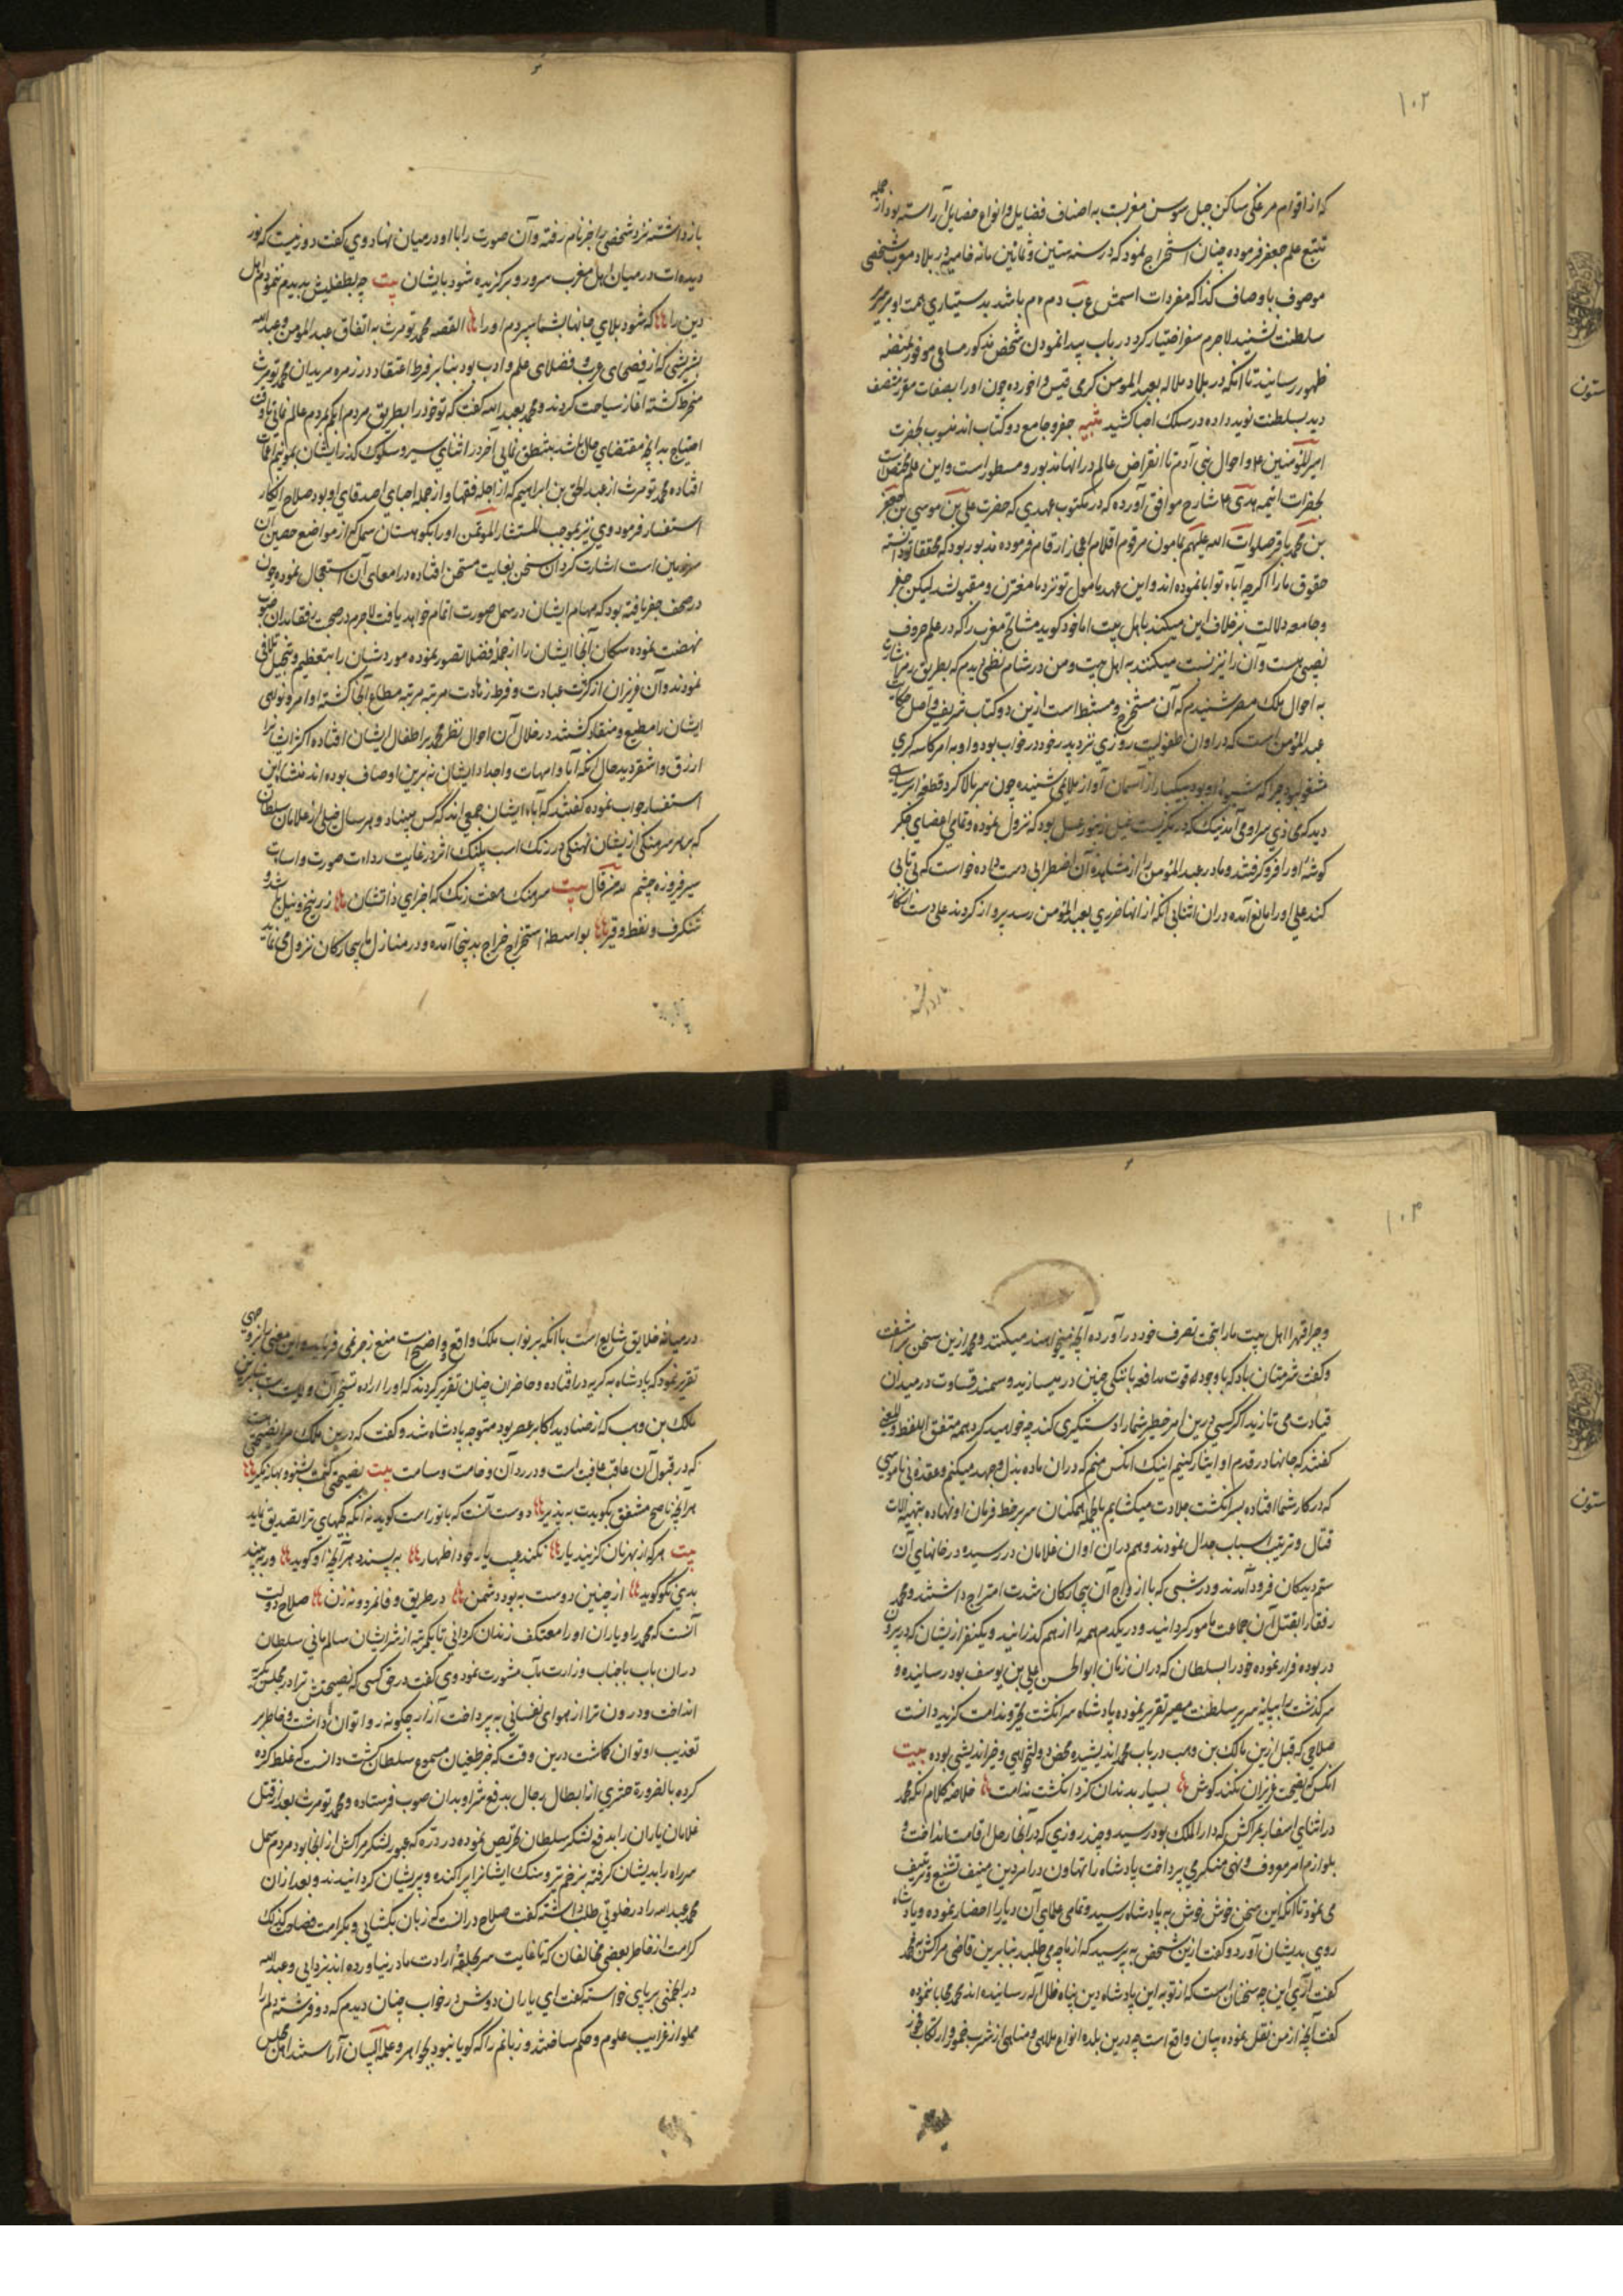 ۱۰۲
که از اقوام مرغکی ساکن جبل سوس مغربست به اصناف فضایل و انواع خصایل آراسته بود از جمله
تتبع علم جعفر فرموده چنان استخراج نمود که در سنه ستین و ثمانین مائه خامسه در بلاد مغرب شخصی
موصوف باوصاف کذا که مفردات اسمش ع ب د م و م باشد بدستیاری همت او بر سریر
سلطنت نشیند لاجرم سفر اختیار کرد در باب پیدا نمودن شخص مذکور مساعی موفور بمنصه
ظهور رسانید تا آنکه در بلاد ملاله بعبد المومن کرمی قیسی واخورده چون او را بصفات مقرر متصف
دید بسلطنت نوید داده در سلک احبا کشید تنبیه جفر و جامع دو کتاب اند منسوب بحضرت
امیر المؤمنین علی و احوال بنی آدم تا انقراض عالم در انها مذبور و مسطور است و این علم مختص است
بحضرات ائیمه هدی علی شارح مواقف آورده که در مکتوب عهدی که حضرت علی بن موسی بن جعفر
بن محمد باقر صلوات الله علیهم بمامون مرقوم اقلام اعجاز ارقام فرموده مذبور بود که محققا تو دانسته
حقوق ما را اگرچه آباء تو ابا نموده اند و این عهد یا مول تو نزد ما مقترن و مقبول شد لیکن جفر
و جامعه دلالت بر خلاف این میکنند باهل بیت اما خود گوید مشایخ مغرب را که در علم حروف
نصیبی هست و آن را نیز نسبت میکنند به اهل بیت و من در شام نظمی دیدم که بطریق رمز اشارت
به احوال ملک مصر شنیدم که آن مستخرج و مستنبط است ازین دو کتاب شریف و اصل حکایت
عبد المؤمن است که در اوان طفولیت روزی نزد پدر خود در خواب بود و او به امر کاسه گری
مشغول بود چرا که شیوه او بود بیکبار از آسمان آواز ملایمی شنیده چون سر بالا کرد قطعه ابر سیاه
دید که محاذی سرا و می آمد نیک که در نگریست خیل زنبور عسل بود که نزول نموده و تمامی اعضای جگر
گوشه او را فرو گرفتند و مادر عبد المؤمن را از مشاهده آن اضطرابی دست داده خواست که بی تابی
کند علی او را مانع آمده در ان اثنا بی آنکه از انها ضرری بعبد المؤمن رسد پرواز کردند علی دست از کار
بازداشته
بازداشته نزد شخصی زاجر نام رفته و آن صورت را با او در میان نهاد وی گفت دور نیست که پور
دیده ات در میان اهل مغرب سرور و برگزیده شود بایشان بیت چه بطفلیش بدیدم نمودم اهل
دین را که شود بلای جانها بشما سپردم او را القصه محمد تومرث به اتفاق عبد المؤمن و عبد الله
بشریشی که از فصحای عرب و فضلای علم و ادب بود بنابر فرط اعتقاد در زمره مریدان محمد تومرث
منخرط گشته آغاز سیاحت کردند و محمد بعبد الله گفت که تو خود را بطریق مردم ابکم بمردم عالم نمای تا وقت
احتیاج بدانچه مقتضای حال باشد بمنطق نمایی آخر در اثنای سیر و سلوک گذر ایشان بمونیم آفات
افتاده محمد تومرث از عبد الحق بن ابراهیم که از اجله فقها و از جمله احبای اصدقای او بود صلاح انکار
استفسار فرمود وی نیز بموجب المستشار المؤتمن او را بکوهستان سمل که از مواضع حصین آن
سرزمین است اشارت کرد آن سخن بغایت مستحن افتاده در امعای آن استعجال نموده چون
در صحف جفر یافته بود که مهام ایشان در سمل صورت اتمام خواهد یافت لاجرم در صحبت رفقا بدان صوب
نهضت نموده سکان آنجا ایشان را از جمله فضلا تصور نموده مورد شان را بتعظیم و تبجیل تلاقی
نمودند و آن عزیزان از کثرت عبادت و فرط زهادت مرتبه مرتبه مطاع آنجا گشته اوامر و نواهی
ایشان را مطیع و منقاد گشتند در خلال آن احوال نظر محمد بر اطفال ایشان افتاده اکثر ایشان را
ازرق و اشقر دید حال آنکه آبا و امهات و اجداد ایشان نه برین اوصاف بوده اند منشا این
استفسار جواب نموده گفتند که آباء ایشان جمعی اند که کس میپناد و هر سال خیلی از غلامان سلطان
که هر سرهنگی ازیشان نهنگی در رنگ اسب پلنگ اثر در غایت رداءت صورت و اساءت
سیر فیروزه چشم لله در قال بیت سرهنگ هفت رنگ که اجزای ذاتشان زرنیخ و نیل شد و
شنگرف و نفط و قیر بواسطه استخراج خراج بدینجا آمده و در منازل ما بیچارگان نزول می نمایند
۱۰۳
و جبرا قهرا اهل بیت ما را بتحت تصرف خود در آورده آنچه میخواهند میکنند و محمد ازین سخن برآشفت
و گفت شرمتان باد که با وجود قوت مدافعه با ننگی چنین در میسازید و سمند قساوت در میدان
قیادت می تازید اگر کسی درین امر خطیر شما را دستگیری کند چه خواهید کرد همه متفق اللفظ و المعنی
گفتند که جانها در قدم او ایثار کنیم اینک آنکس منم که در ان ماده بذل جهد میکنم و عقده بی ناموسی
که در کار شما افتاده بسر انگشت جلادت میکشایم بالجمله همگنان سر بر خط فرمان او نهاده بتهیه الات
قتال و ترتیب اسباب جدال نمودند و هم در ان اوان غلامان در رسیده در خانهای آن
ستمدیدگان فرود آمدند و در شبی که با ازواج آن بیچارگان شدت امتزاج داشتند و محمد
رفقا را بقتل آن جماعت مامور گردانید و در یکدم همه را از هم گذرانید و یکنفر ازیشان که در بیرون
در بوده فرار نموده خود را بسلطان که در ان زمان ابو الحسن علی بن یوسف بود رسانیده و
سرگذشت را بپایه سریر سلطنت مصیر تقریر نموده پادشاه سر انگشت تحیر و ندامت گزید دانست
صلاحی که قبل ازین مالک بن وهب در باب محمد اندیشیده محض دولتخواهی و خیر اندیشی بوده بیت
آنکس که نصیحت عزیزان نکند گوش بسیار بدندان گزد انگشت ندامت خلاصه کلام آنکه محمد
در اثنای اسفار بمراکش که دار الملک بود رسید و چند روزی که در آنجا رحل اقامت انداخت و
بلوازم امر معروف و نهی منکر می پرداخت پادشاه را تهاون در امر دین منیف تشنیع و تعنیف
می نمود تا آنکه این سخن خوش خوش به پادشاه رسید و تمامی علمای آن دیار را احضار نموده و پادشاه
روی بدیشان آورد و گفت ازین شخص به پرسید که از ما چه می طلبد بنابرین قاضی مراکش به محمد
گفت آری این چه سخنان است که از تو به این پادشاه دین پناه ظل اله رسانیده اند محمد محابا ننموده
گفت آنچه از من نقل نموده بیان واقع است چه درین بلده انواع ملاهی و مناهی از شرب خمور و ارتکاب فجور
در میانه خلایق شایع است با آنکه بر نواب ملک واقع و واضح است منع و زجر نمی فرمایند و این معنی را بر وجهی
تقریر نمود که پادشاه به گریه در افتاده و حاضران چنان تقریر کردند که او را اراده تسخیر آن ولایت است بنابرین
مالک بن وهب که از صنادید اکابر عصر بود متوجه پادشاه شد و گفت که درین ملک مرا نصیحتی است
که در قبول آن عاقبت عافیت است و در رد آن وخامت و سآمت بیت نصیحتی کنمت بشنو و بهانه مگیر
هر آنچه ناصح مشفق بگویدت به پذیر دوست آنست که با تو راست گوید نه آنکه کجهای ترا تصدیق نماید
بیت هر که از بهر زیان گزیند یار نکند عیب یار خود اظهار به پسندد هر آنچه او گوید ور ببیند
بدی نکو گوید از چنین دوست به بود دشمن در طریق وفا نه مرد و نه زن صلاح دولت
آنست که محمد را و یاران او را معتکف زندان گردانی تا یکمرتبه از شر ایشان سالم مانی سلطان
در ان باب با جناب وزارت مآب مشورت نمود وی گفت در حق کسی که نصیحتش ترا در مجلس بگریه
انداخت و درون ترا از هوای نفسانی به پرداخت آزار چگونه روا توان داشت و خاطر بر
تعذیب او توان گماشت درین وقت که خبر طغیان مسموع سلطان گشت دانست که غلط کرده
کرده بالضرورة حشری از ابطال رجال بدفع شر او بدان صوب فرستاده و محمد تومرث بعد از قتل
غلامان یاران را بدفع لشکر سلطان تحریص نموده در دره که عبور لشکر مراکش از انجا بود مردم سمل
سر راه را بدیشان گرفته بزخم تیر و سنگ ایشانرا پراکنده و پریشان گردانیدند و بعد از ان
محمد عبد الله را در خلوتی طلب داشته گفت صلاح در انست که زبان بگشایی و بکرامت فصاحت کذلک
کرامت از خاطر بعضی مخالفان که تا غایت سر بحلقه ارادت ما در نیاورده اند بزدایی و عبد الله
در انجمنی بر پای خواسته گفت ای یاران دوش در خواب چنان دیدم که دو فرشته دلم را
مملو از غرایب علوم و حکم ساختند و زبانم را که گویا نبود بجواهر و علمه البیان آراستند اهل مجلس